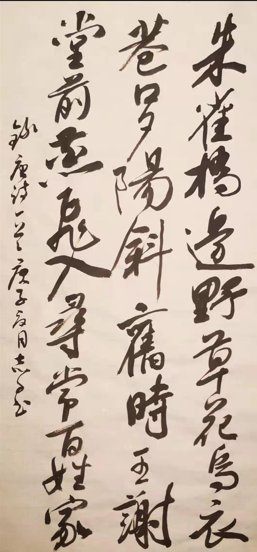 朱雀橋邊野草花烏衣
巷口夕陽斜舊時王謝
堂前燕飛入尋常百姓家
錄唐诗一首庚子夏月志书